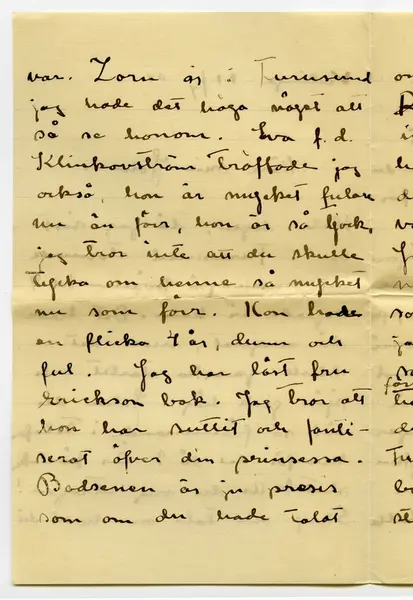 var. Zorn är i Furusund
jag hade det höga nöjet att
så se honom. Eva f. d.
Klinkovström träffade jag
också, hon är mycket fulare
nu än förr, hon är så tjock,
jag tror inte att du skulle
tycka om henne så mycket
nu som förr. Hon hade
en flicka 4 år, dum och
ful. Jag har läst fru
Erickson bok. Jag tror att
hon har suttit och fanti-
serat öfver din prinsessa.
Badscenen är ju presis
som om du hade talat